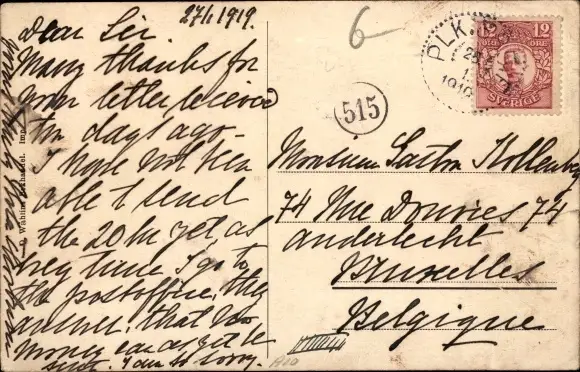 27/1 1919.
Dear Sir
Many thanks for
your letter received
ten days ago -
I have not been
able to send
the 20 kr yet as
every time I go to
the postoffice they
answer, that no
money can as yet be
sent. I am so sorry.
6
515
PLK
1919
12 12
ÖRE
SVERIGE
Monsieur Gaston
74 Rue Douvres 74
Anderlecht
Bruxelles
Belgique